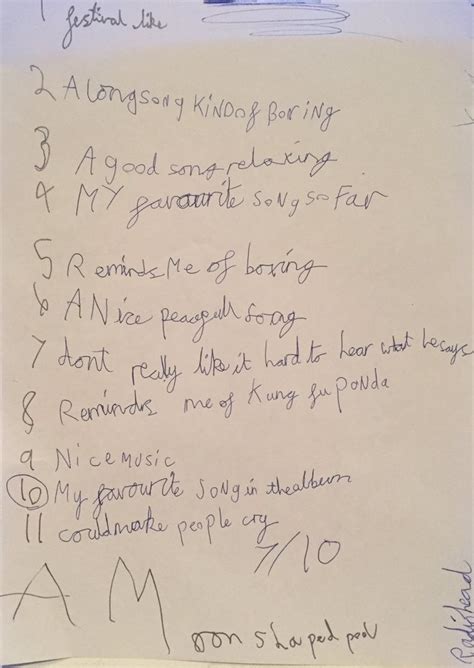 1 festival like
2 A long song KiNDof BoriNg
3 A good song relaxing
4 MY favourite soNg so Far
5 ReminDs Me of boxing
6 A Nice peacgull song
7 dont really like it hard to hear what he says
8 Reminds me of Kung fu PoNda
9 Nice Music
10 My favourite soNg in the album
11 could make people cry
7/10
A Moon shaped pool
Radiohead